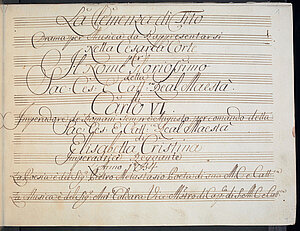 La Clemenza di Tito
Dramma per Musica da Rappresentarsi
Nella Cesarea Corte
Per il
Nome Gloriosissimo
della
Sac: Ces: e Catt: Real Maestà
Carlo VI.
Imperadore de Romani sempre Augusto per comando della
Sac: Ces: e Catt: Real Maestà
Elisabetta Cristina
Imperadrice Regnante
L'Anno 1734
La Poesia è del Sig: Pietro Metastasio Poeta di sua M: C: e Catt:
La Musica è del Sig: Ant: Caldara Vice Mastro di Cap: di S: M: C: e Cat: